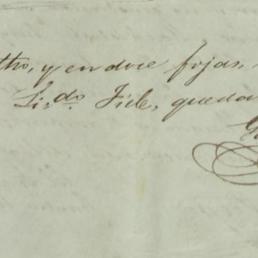 tho, y en doce fojas,
Li.do Fiel, queda